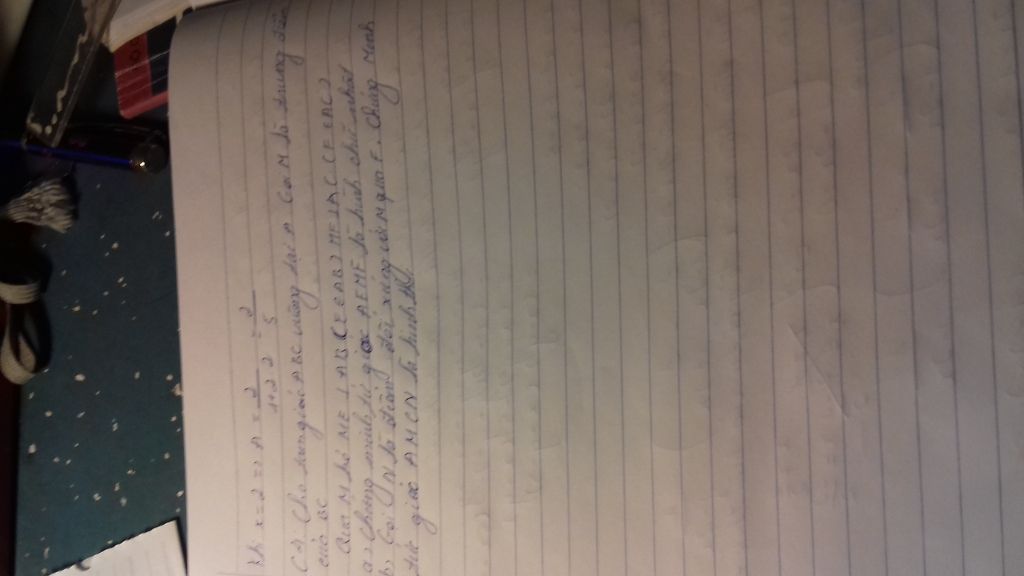 Kh: x = 2 => A = 2/1+2² = 2/5
C3) Cho tam giác ABC vuông tại A. Gọi M là trung điểm
của BC
Qua M, kẻ ME ⊥ AB (E ∈ AB) MF ⊥ AC (F ∈ AC)
a, Chứng minh tứ giác AEMF là hình chữ nhật
b, Gọi N là điểm đối xứng với M qua F. Chứng Minh
tứ giác AMCN là hình thoi